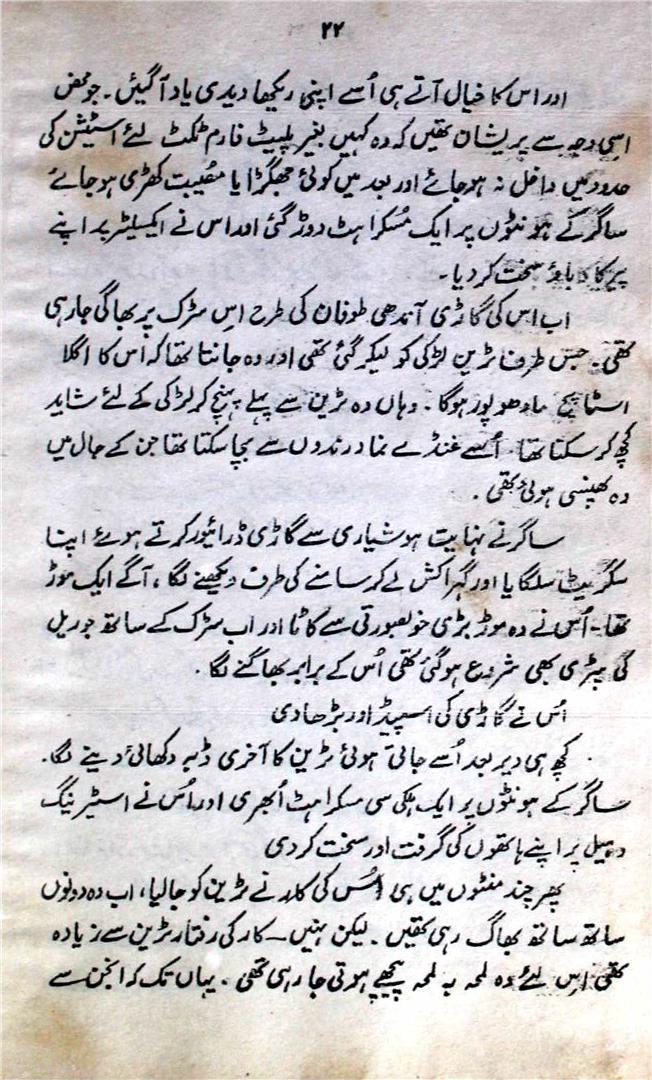 ۲۲
اور اس کا خیال آتے ہی اُسے اپنی ریکھا دیدی یاد آ گیئں۔ جو محض
اسی وجہ سے پریشان تھیں کہ وہ کہیں بغیر پلیٹ فارم ٹکٹ لئے اسٹیشن کی
حدود میں داخل نہ ہو جائے اور بعد میں کوئی جھگڑا یا مصُیبت کھڑی ہو جائے
ساگر کے ہونٹوں پر ایک مُسکراہٹ دوڑ گئی اور اس نے ایکسیلیٹر پر اپنے
پیر کا دباؤ سخت کر دیا۔
اب اس کی گاڑی آندھی طوفان کی طرح اِس سڑک پر بھاگی جا رہی
تھی۔ جس طرف ٹرین لڑکی کو لیکر گئی تھی اور وہ جانتا تھا کہ اس کا اگلا
اسٹاپیج مادھو پور ہوگا۔ وہاں وہ ٹرین سے پہلے پہنچ کر لڑکی کے لئے شاید
کچھ کر سکتا تھا۔ اُسے غنڈے نما درندوں سے بچا سکتا تھا جن کے جال میں
وہ پھنسی ہوئی تھی۔
ساگر نے نہایت ہوشیاری سے گاڑی ڈرائیور کرتے ہوئے اپنا
سگریٹ سلگایا اور گہرا کش لے کر سامنے کی طرف دیکھنے لگا، آگے ایک موڑ
تھا۔ اُس نے وہ موڑ بڑی خوبصورتی سے کاٹا اور اب سڑک کے ساتھ جو ریل
کی پٹری بھی شروع ہو گئی تھی اُس کے برابر بھاگنے لگا۔
اُس نے گاڑی کی اسپیڈ اور بڑھا دی
کچھ ہی دیر بعد اُسے جاتی ہوئی ٹرین کا آخری ڈبہ دکھائی دینے لگا۔
ساگر کے ہونٹوں پر ایک ہلکی سی مسکراہٹ اُبھری اور اُس نے اسٹیرنگ
وہیل پر اپنے ہاتھوں کی گرفت اور سخت کر دی
پھر چند منٹوں میں ہی اُس کی کار نے ٹرین کو جا لیا، اب وہ دونوں
ساتھ ساتھ بھاگ رہی تھیں۔ لیکن نہیں۔ کار کی رفتار ٹرین سے زیادہ
تھی اِس لئے وہ لمحہ بہ لمحہ پیچھے ہوتی جا رہی تھی۔ یہاں تک کہ انجن سے